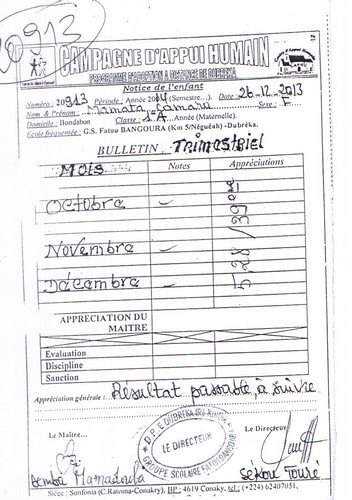 20913
CAMPAGNE D'APPUI HUMAIN
PROGRAMME D'ADOPTION A DISTANCE DE DUBREKA
Notice de l'enfant
Numéro : 20913 Période : Année 2014 (Semestre...). Date : 26-12-2013
Nom & Prénom : Mamata Camara Sexe : F
Domicile : Bondabon Classe : 1°A Année (Maternelle).
Ecole fréquentée : G.S. Fatou BANGOURA (Km 5/Néguéah) -Dubréka.
BULLETIN : Trimestriel
MOIS Notes Appréciations
Octobre
Novembre
Décembre
5,28/39
APPRECIATION DU
MAITRE
Evaluation
Discipline
Sanction
Appréciation générale : Résultat passable, à suivre
Le Maître... Le Directeur
D.P.E DUBREKA
LE DIRECTEUR
GROUPE SCOLAIRE
Mamadouba Sékou Touré
Siège : Sonfonia (C.Ratoma-Conakry), BP : 4619 Conaky, tel : (+224) 62407051.